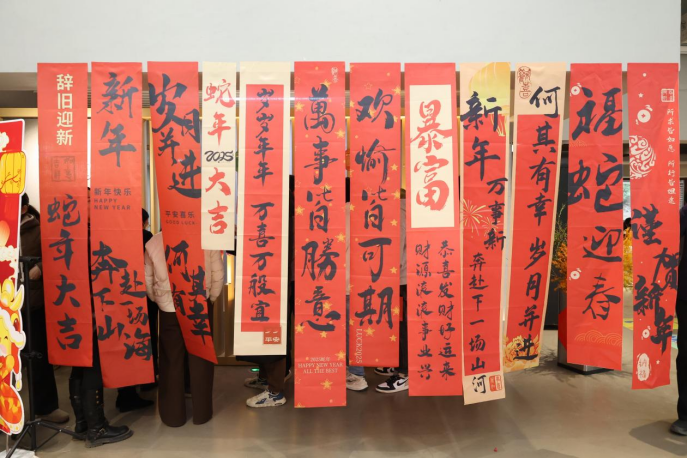 辞旧迎新
蛇年大吉
新年
新年快乐
HAPPY
NEW YEAR
奔赴下一场山海
岁月并进
平安喜乐
何其有幸
蛇年
2025
大吉
岁岁年年
万喜万般宜
萬事皆勝意
HAPPY NEW YEAR
ALL THE BEST
欢愉皆可期
暴富
恭喜发财好运来
财源滚滚事业兴
新年
万事新
奔赴下一场山河
何其有幸
岁月并进
福蛇迎春
所求皆如愿
所行皆坦途
谨贺新年